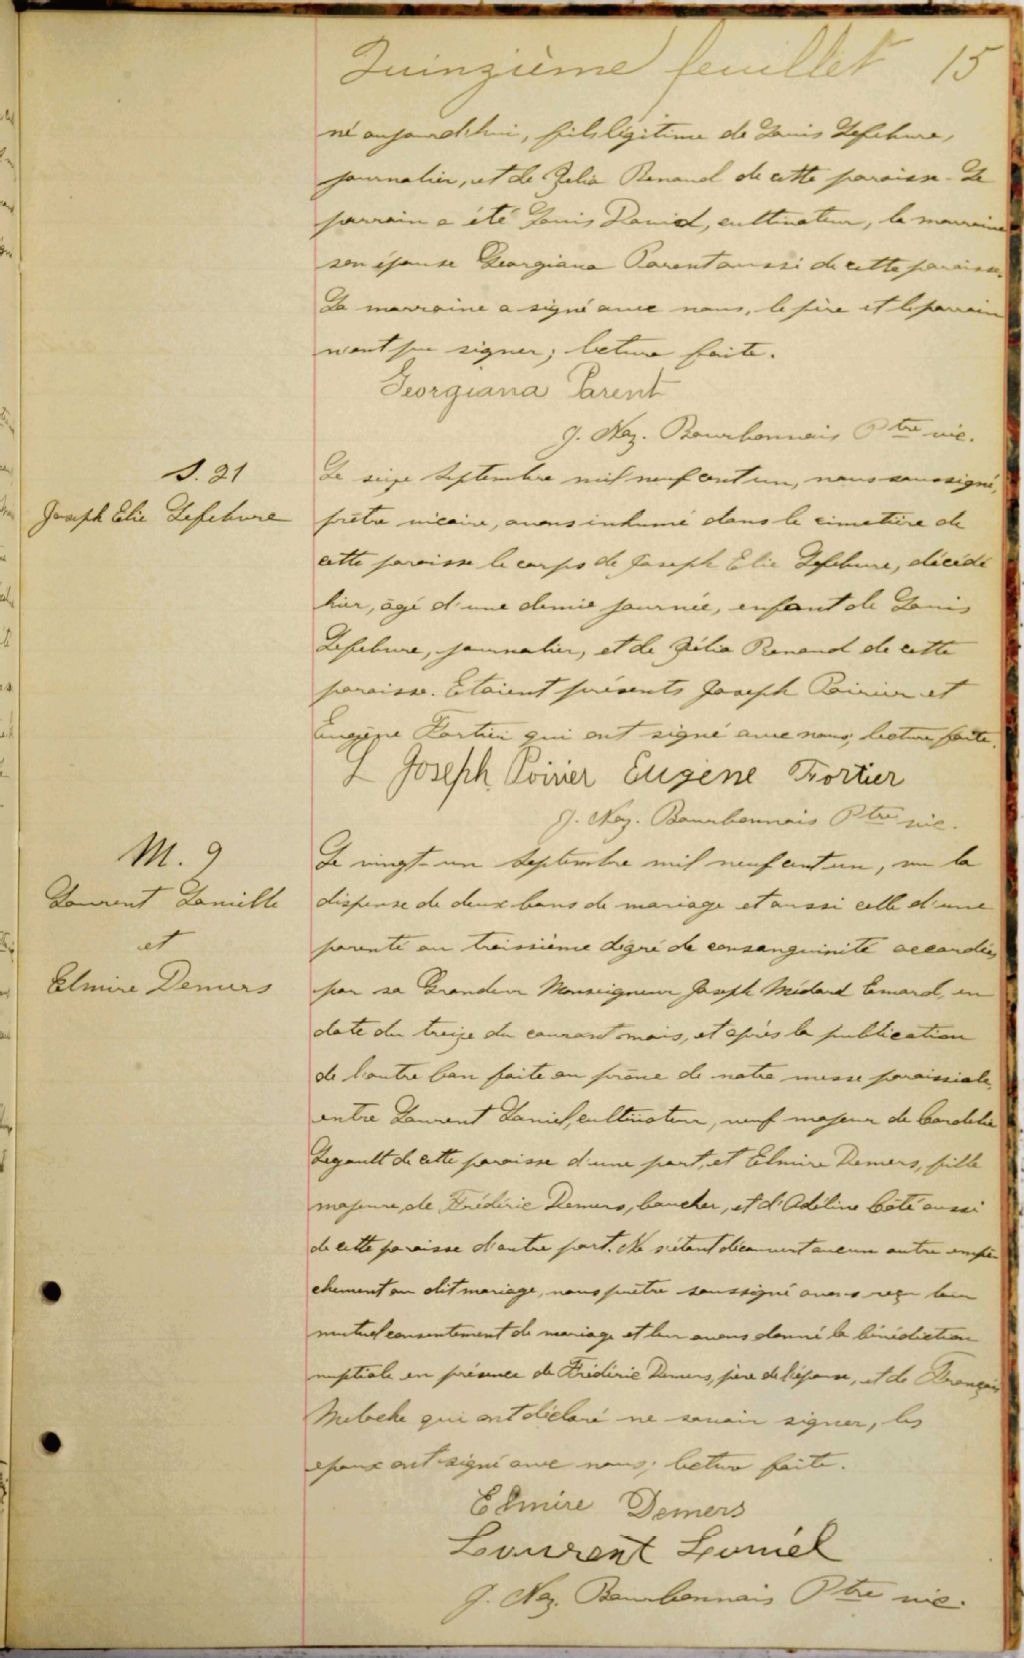 Quinzième feuillet 15
né aujourd'hui, fils légitime de Louis Lefebvre,
journalier, et de Zélia Renaud de cette paroisse. Le
parrain a été Louis David, cultivateur, la marraine
son épouse Georgiana Parent aussi de cette paroisse.
La marraine a signé avec nous, le père et le parrain
n'ont pu signer; lecture faite.
Georgiana Parent
J. Naz. Bourbonnais Ptre vic.
S. 21
Joseph Elie Lefebvre
Le seize Septembre mil neuf cent un, nous soussigné,
prêtre vicaire, avons inhumé dans le cimetière de
cette paroisse le corps de Joseph Elie Lefebvre, décédé
hier, âgé d'une demie journée, enfant de Louis
Lefebvre, journalier, et de Zélia Renaud de cette
paroisse. Etaient présents Joseph Poirier et
Eugène Fortier qui ont signé avec nous; lecture faite.
L Joseph Poirier Eugene Fortier
J. Naz. Bourbonnais Ptre vic.
M. 9
Laurent
et
Elmire Demers
Le vingt-un Septembre mil neuf cent un, vu la
dispense de deux bans de mariage et aussi celle d'une
parenté au troissième degré de consanguinité accordées
par sa Grandeur Monseigneur Joseph Médard Emard, en
date du treize du courant mois, et après la publication
de l'autre ban faite au prône de notre messe paroissiale,
entre Laurent cultivateur, veuf majeur de
Legault de cette paroisse d'une part, et Elmire Demers, fille
majeure, de Frédéric Demers, boucher, et d'Adéline Côté aussi
de cette paroisse d'autre part. Ne s'étant découvert aucun autre empê
chement au dit mariage, nous prêtre soussigné avons reçu leur
mutuel consentement de mariage et leur avons donné la bénédiction
nuptiale en présence de Frédéric Demers, père de l'épouse, et de François
Meloche qui ont déclaré ne savoir signer, les
epoux ont signé avec nous; lecture faite.
Elmire Demers
Laurent
J. Naz. Bourbonnais Ptre vic.